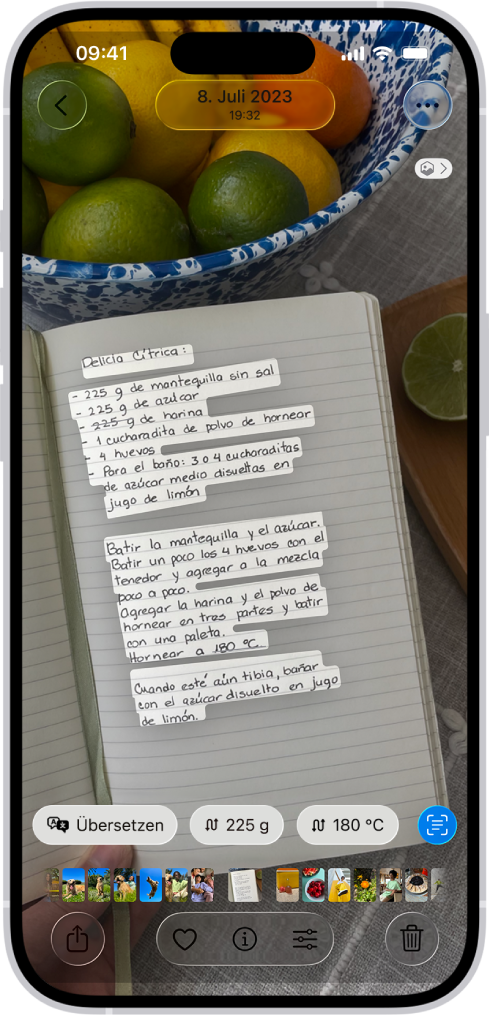 09:41
8. Juli 2023
19:32
Delicia Cítrica:
- 225 g de mantequilla sin sal
- 225 g de azúcar
- 225 g de harina
- 1 cucharadita de polvo de hornear
- 4 huevos
- Para el baño: 3 o 4 cucharaditas
de azúcar medio disueltas en
jugo de limón
Batir la mantequilla y el azúcar.
Batir un poco los 4 huevos con el
tenedor y agregar a la mezcla
poco a poco.
Agregar la harina y el polvo de
hornear en tres partes y batir
con una paleta.
Hornear a 180 °C.
Cuando esté aún tibia, bañar
con el azúcar disuelto en jugo
de limón.
Übersetzen
225 g
180 °C